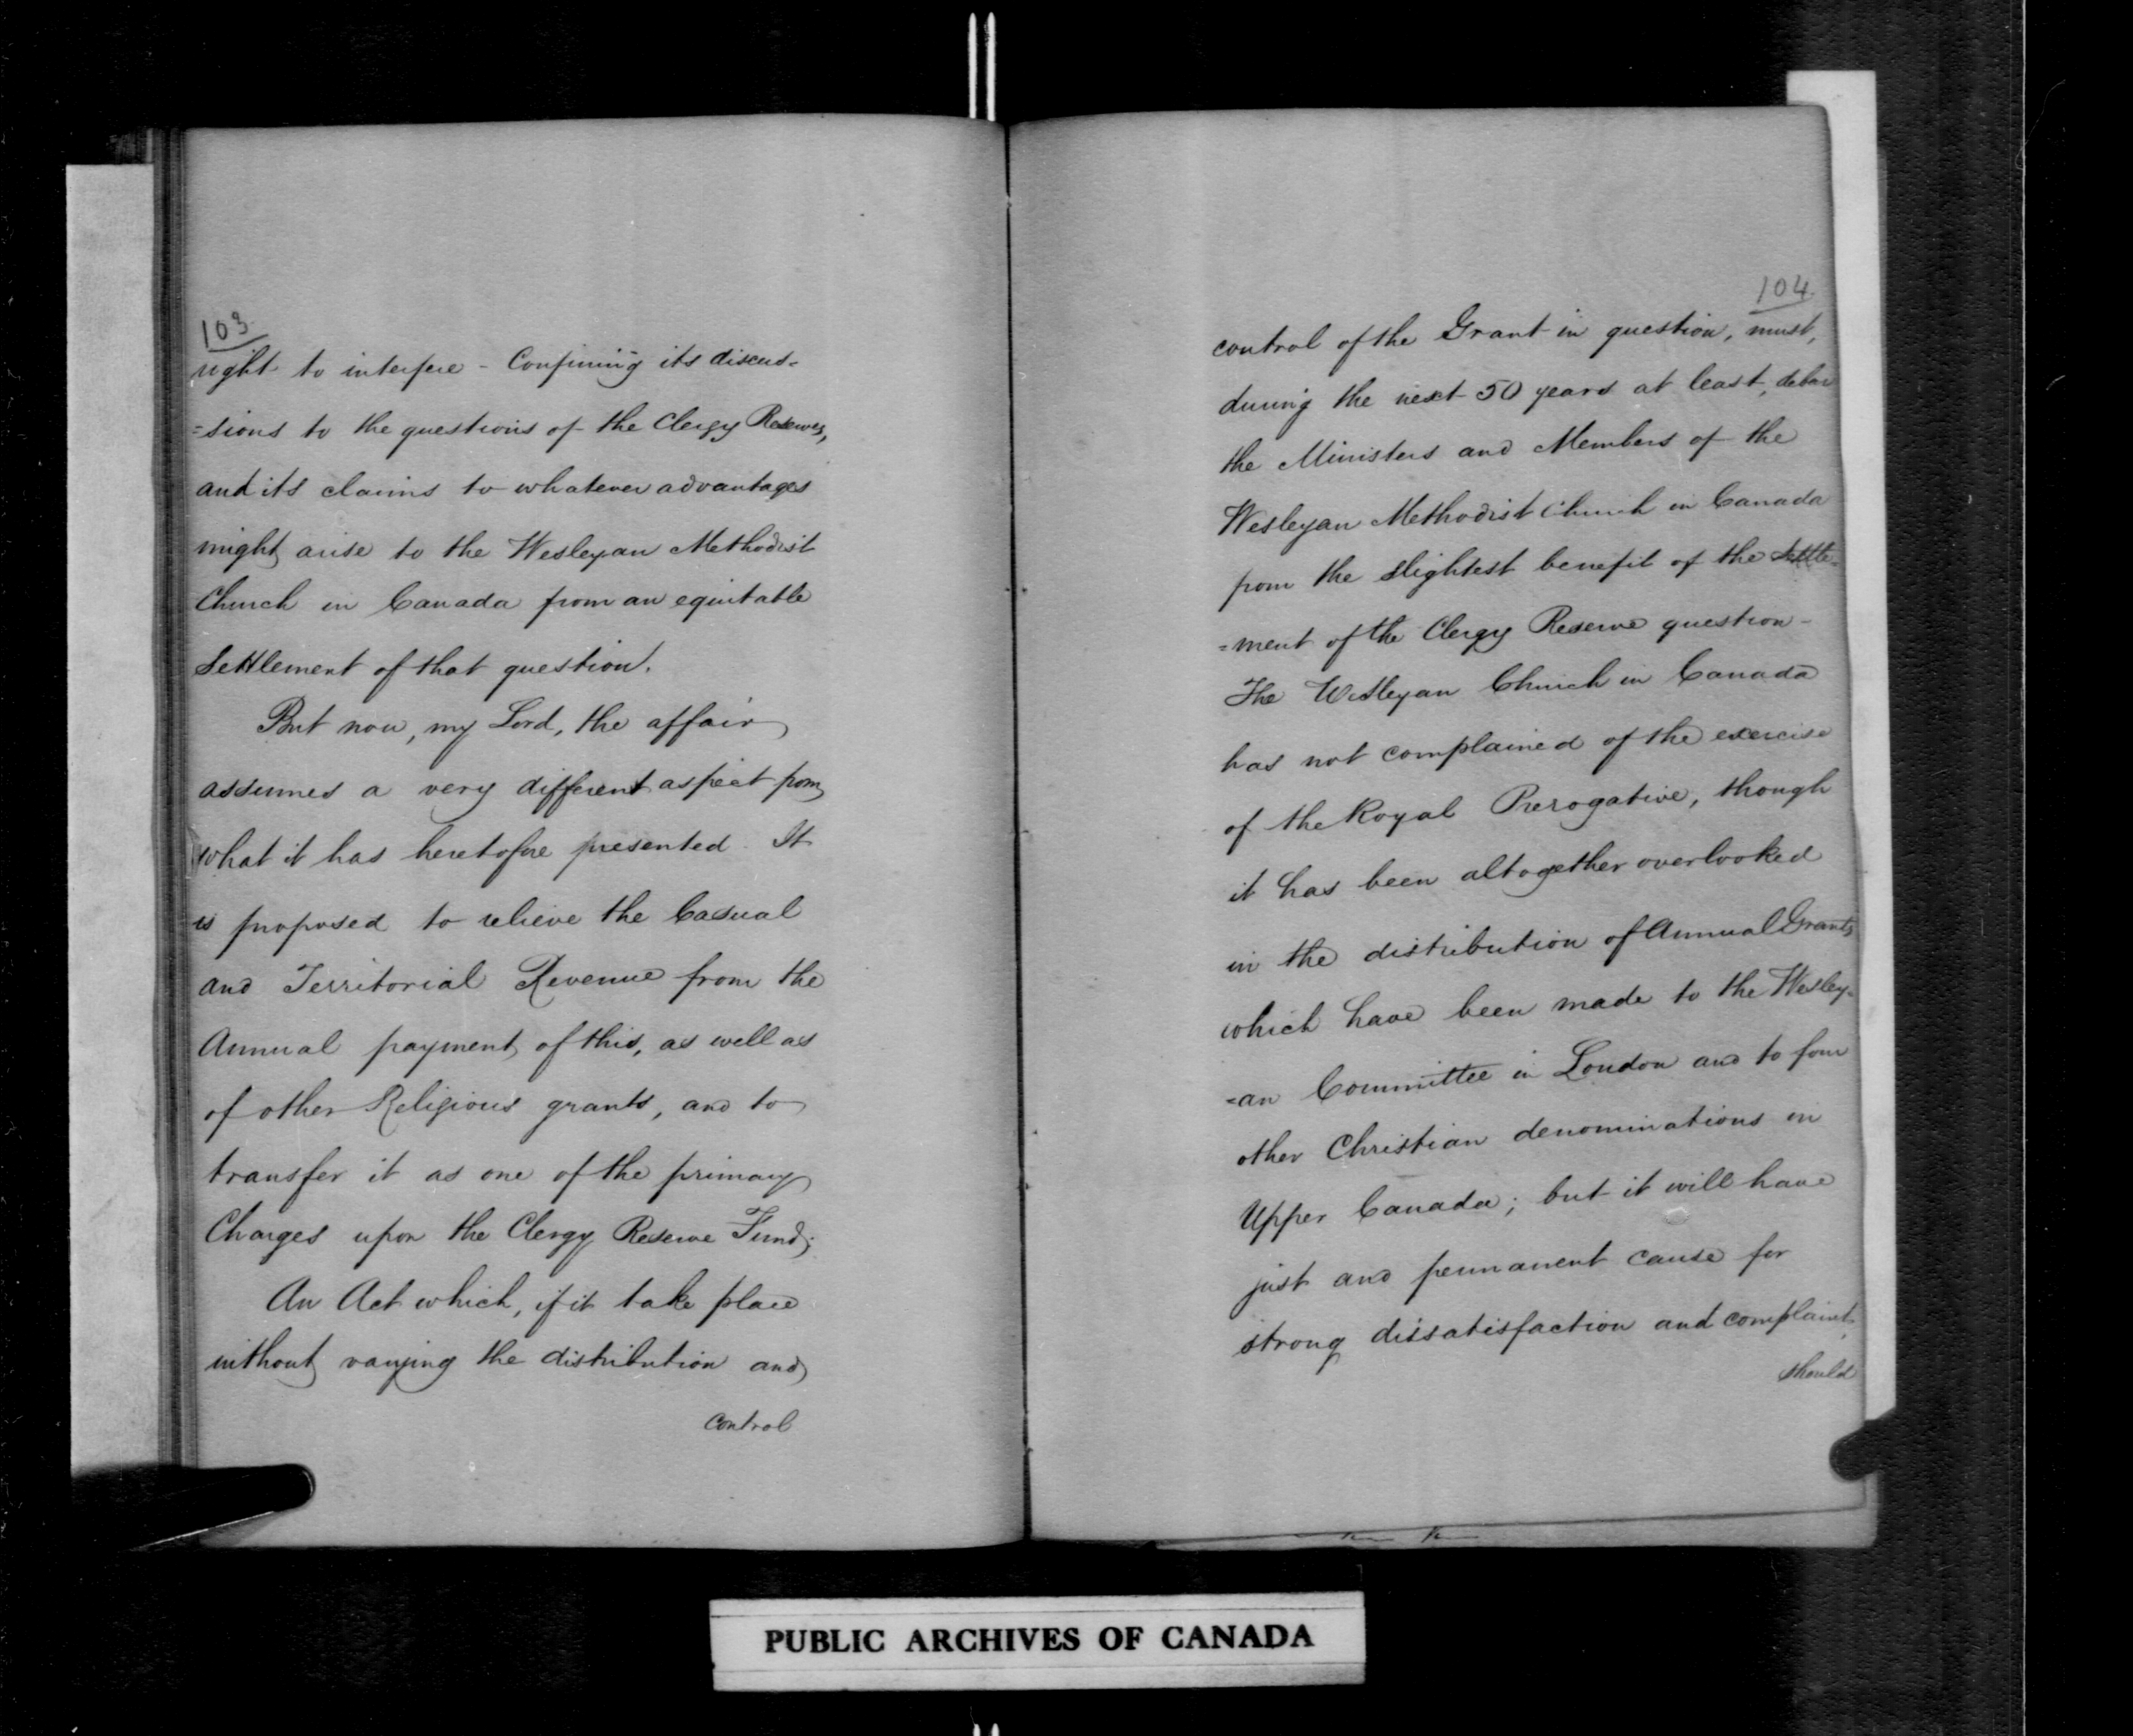 103
right to interfere - Confining its discus-
=sions to the questions of the Clergy Reserves,
and its claims to whatever advantages
might arise to the Wesleyan Methodist
Church in Canada from an equitable
Settlement of that question.
But now, my Lord, the affair
assumes a very different aspect from
what it has heretofore presented. It
is proposed to relieve the Casual
and Territorial Revenue from the
Annual payment of this, as well as
of other Religious grants, and to
transfer it as one of the primary
Charges upon the Clergy Reserve Fund;
An Act which, if it take place
without varying the distribution and
control
104
control of the Grant in question, must,
during the next 50 years at least, debar
the Ministers and Members of the
Wesleyan Methodist Church in Canada
from the slightest benefit of the Settle-
=ment of the Clergy Reserve question -
The Wesleyan Church in Canada
has not complained of the exercise
of the Royal Prerogative, though
it has been altogether overlooked
in the distribution of Annual Grants
which have been made to the Wesley-
=an Committee in London and to four
other Christian denominations in
Upper Canada; but it will have
just and permanent cause for
strong dissatisfaction and complaint,
should
PUBLIC ARCHIVES OF CANADA